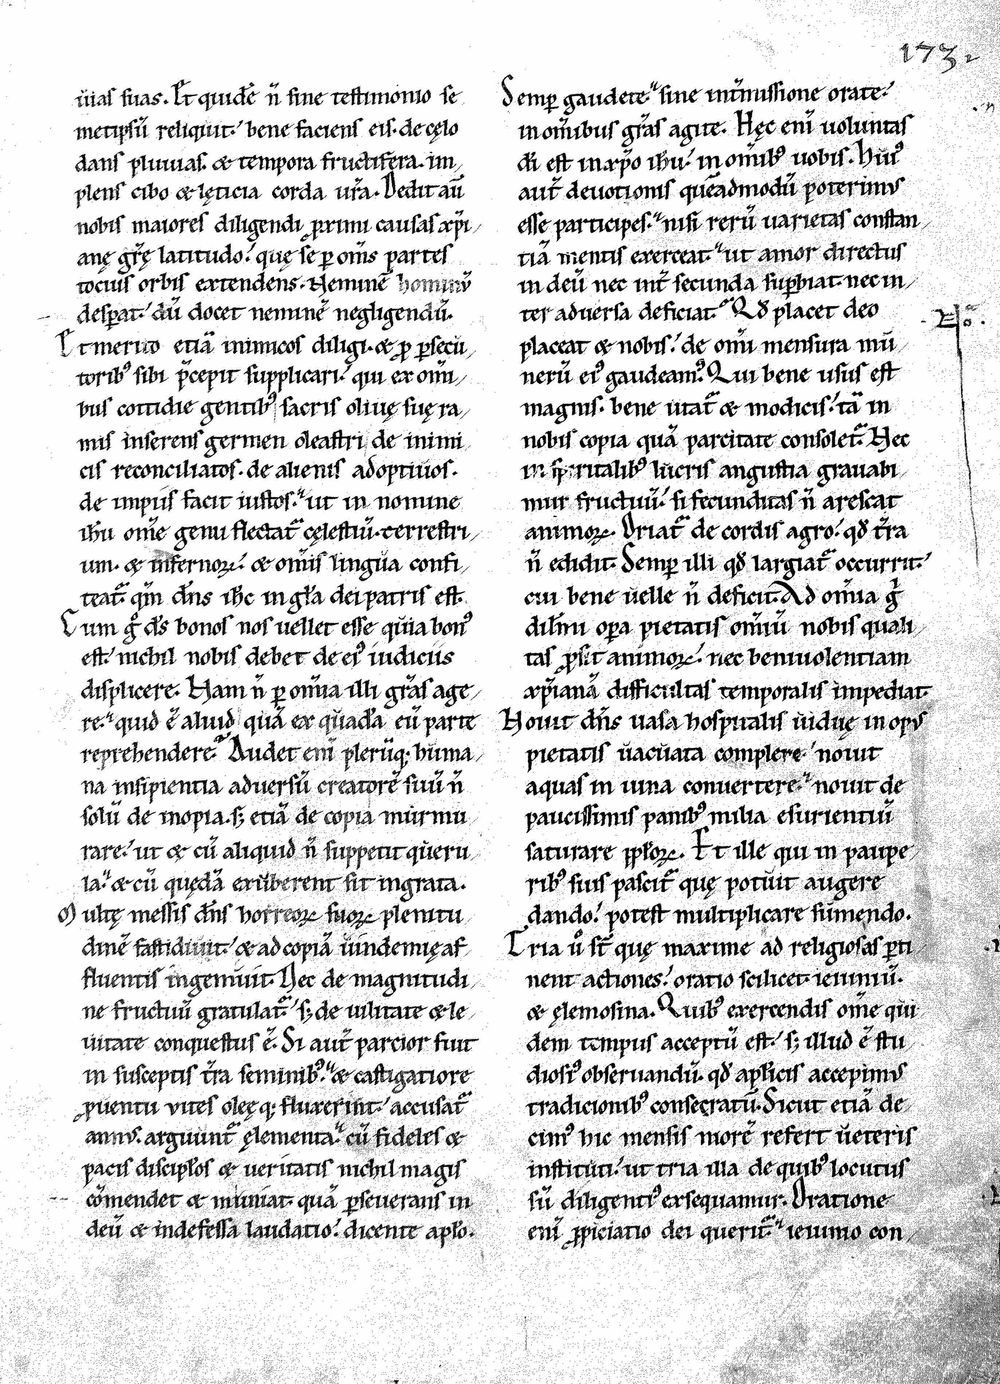 173
uias suas. Et quidē n̄ sine testimonio se
metipsū reliquit. bene faciens eis. de cęlo
dans pluuias. & tempora fructifera. im
plens cibo & lęticia corda ur̄a. Dedit aū
nobis maiores diligendi proximi causas xp̄i
anę gr̄ę latitudo. que se ꝑ om̄s partes
tocius orbis extendens. Neminē hominū
desperat. dū docet neminē negligendū.
Et merito etiā inimicos diligi. & ꝓ ꝑsecu
torib; sibi p̄cepit supplicari. qui ex om̄i
bus cottidie gentib; sacris oliuę suę ra
mis inserens germen oleastri de inimi
cis reconciliatos. de alienis adoptiuos.
de impiis facit iustos. ut in nomine
ihu om̄e genu flectat̄ cęlestiū. terrestri
um. & infernoꝝ. & om̄is lingua confi
teat̄ qm̄ dn̄s ihc in gl̄a dei patris est.
Cum g̊ ds̄ bonos nos uellet esse quia bon;
est. nichil nobis debet de ei; iudiciis
displicere. Nam n̄ ꝑ om̄ia illi gr̄as age
re. quid ē aliud quā ex quadā eū parte
reprehendere. Audet eni plerūq; huma
na insipientia aduersū creatorē suū n̄
solū de inopia. s; etiā de copia murmu
rare. ut & cū aliquid n̄ suppetit queru
la. & cū quędā exuberent sit ingrata.
Multę messis dn̄s horreoꝝ suoꝝ plenitu
dinē fastidiuit. & ad copiā uindemię af
fluentis ingemuit. Nec de magnitudi
ne fructuū gratulat̄. s; de uilitate & le
uitate conquestus ē. Si aut̄ parcior fuit
in susceptis t̄ra seminib;. & castigatiore
ꝓuentu uites oleęq; fluxerint. accusat̄
ann;. arguunt̄ elementa. cū fideles &
pacis discipłos & ueritatis nichil magis
cōmendet & muniat. quā ꝑseuerans in
deū & indefessa laudatio. dicente apło.
Semꝑ gaudete. sine int̄missione orate.
in om̄ibus gr̄as agite. Hęc eni uoluntas
di est in xp̄o ihu. in om̄ib; uobis. Hui;
aut̄ deuotionis quēadmodū poterim;
esse participes. nisi rerū uarietas constan
tiā mentis exerceat. ut amor directus
in deū nec int̄ secunda supbiat. nec in
ter aduersa deficiat. Qd placet deo
placeat & nobis. de om̄i mensura mū
nerū ei; gaudeam;. Qui bene usus est
magnis. bene utat̄ & modicis. tā in
nobis copia quā parcitate consolet̄. Nec
in sp̄ritalib; lucris angustia grauabi
mur fructuū. si fecunditas n̄ arescat
animoꝝ. Oriat̄ de cordis agro. qd t̄ra
n̄ edidit. Semꝑ illi qd largiat̄ occurrit.
cui bene uelle n̄ deficit. Ad om̄ia g̊
dil̄mi opa pietatis om̄iū nobis quali
tas ꝓsit animoꝝ. nec beniuolentiam
xp̄ianā difficultas temporalis impediat.
Nouit dn̄s uasa hospitalis uiduę in op;
pietatis uacuata complere. nouit
aquas in uina conuertere. nouit de
paucissimis panib; milia esurientiū
saturare ppłoꝝ. Et ille qui in paupe
rib; suis pascit̄ quę potuit augere
dando. potest multiplicare sumendo.
Tria ū st̄ quę maxime ad religiosas ꝑti
nent actiones. oratio scilicet. ieiuniū.
& ęlemosina. Quib; exercendis om̄e qui
dem tempus acceptū est. s; illud ē stu
diosi; obseruandū. qd apłicis accepim;
tradicionib; consecratū. Sicut etiā de
cim; hic mensis morē refert ueteris
instituti. ut tria illa de quib; locutus
sū diligenti; exsequamur. Oratione
eni ꝓpiciatio dei querit̄. ieiunio con